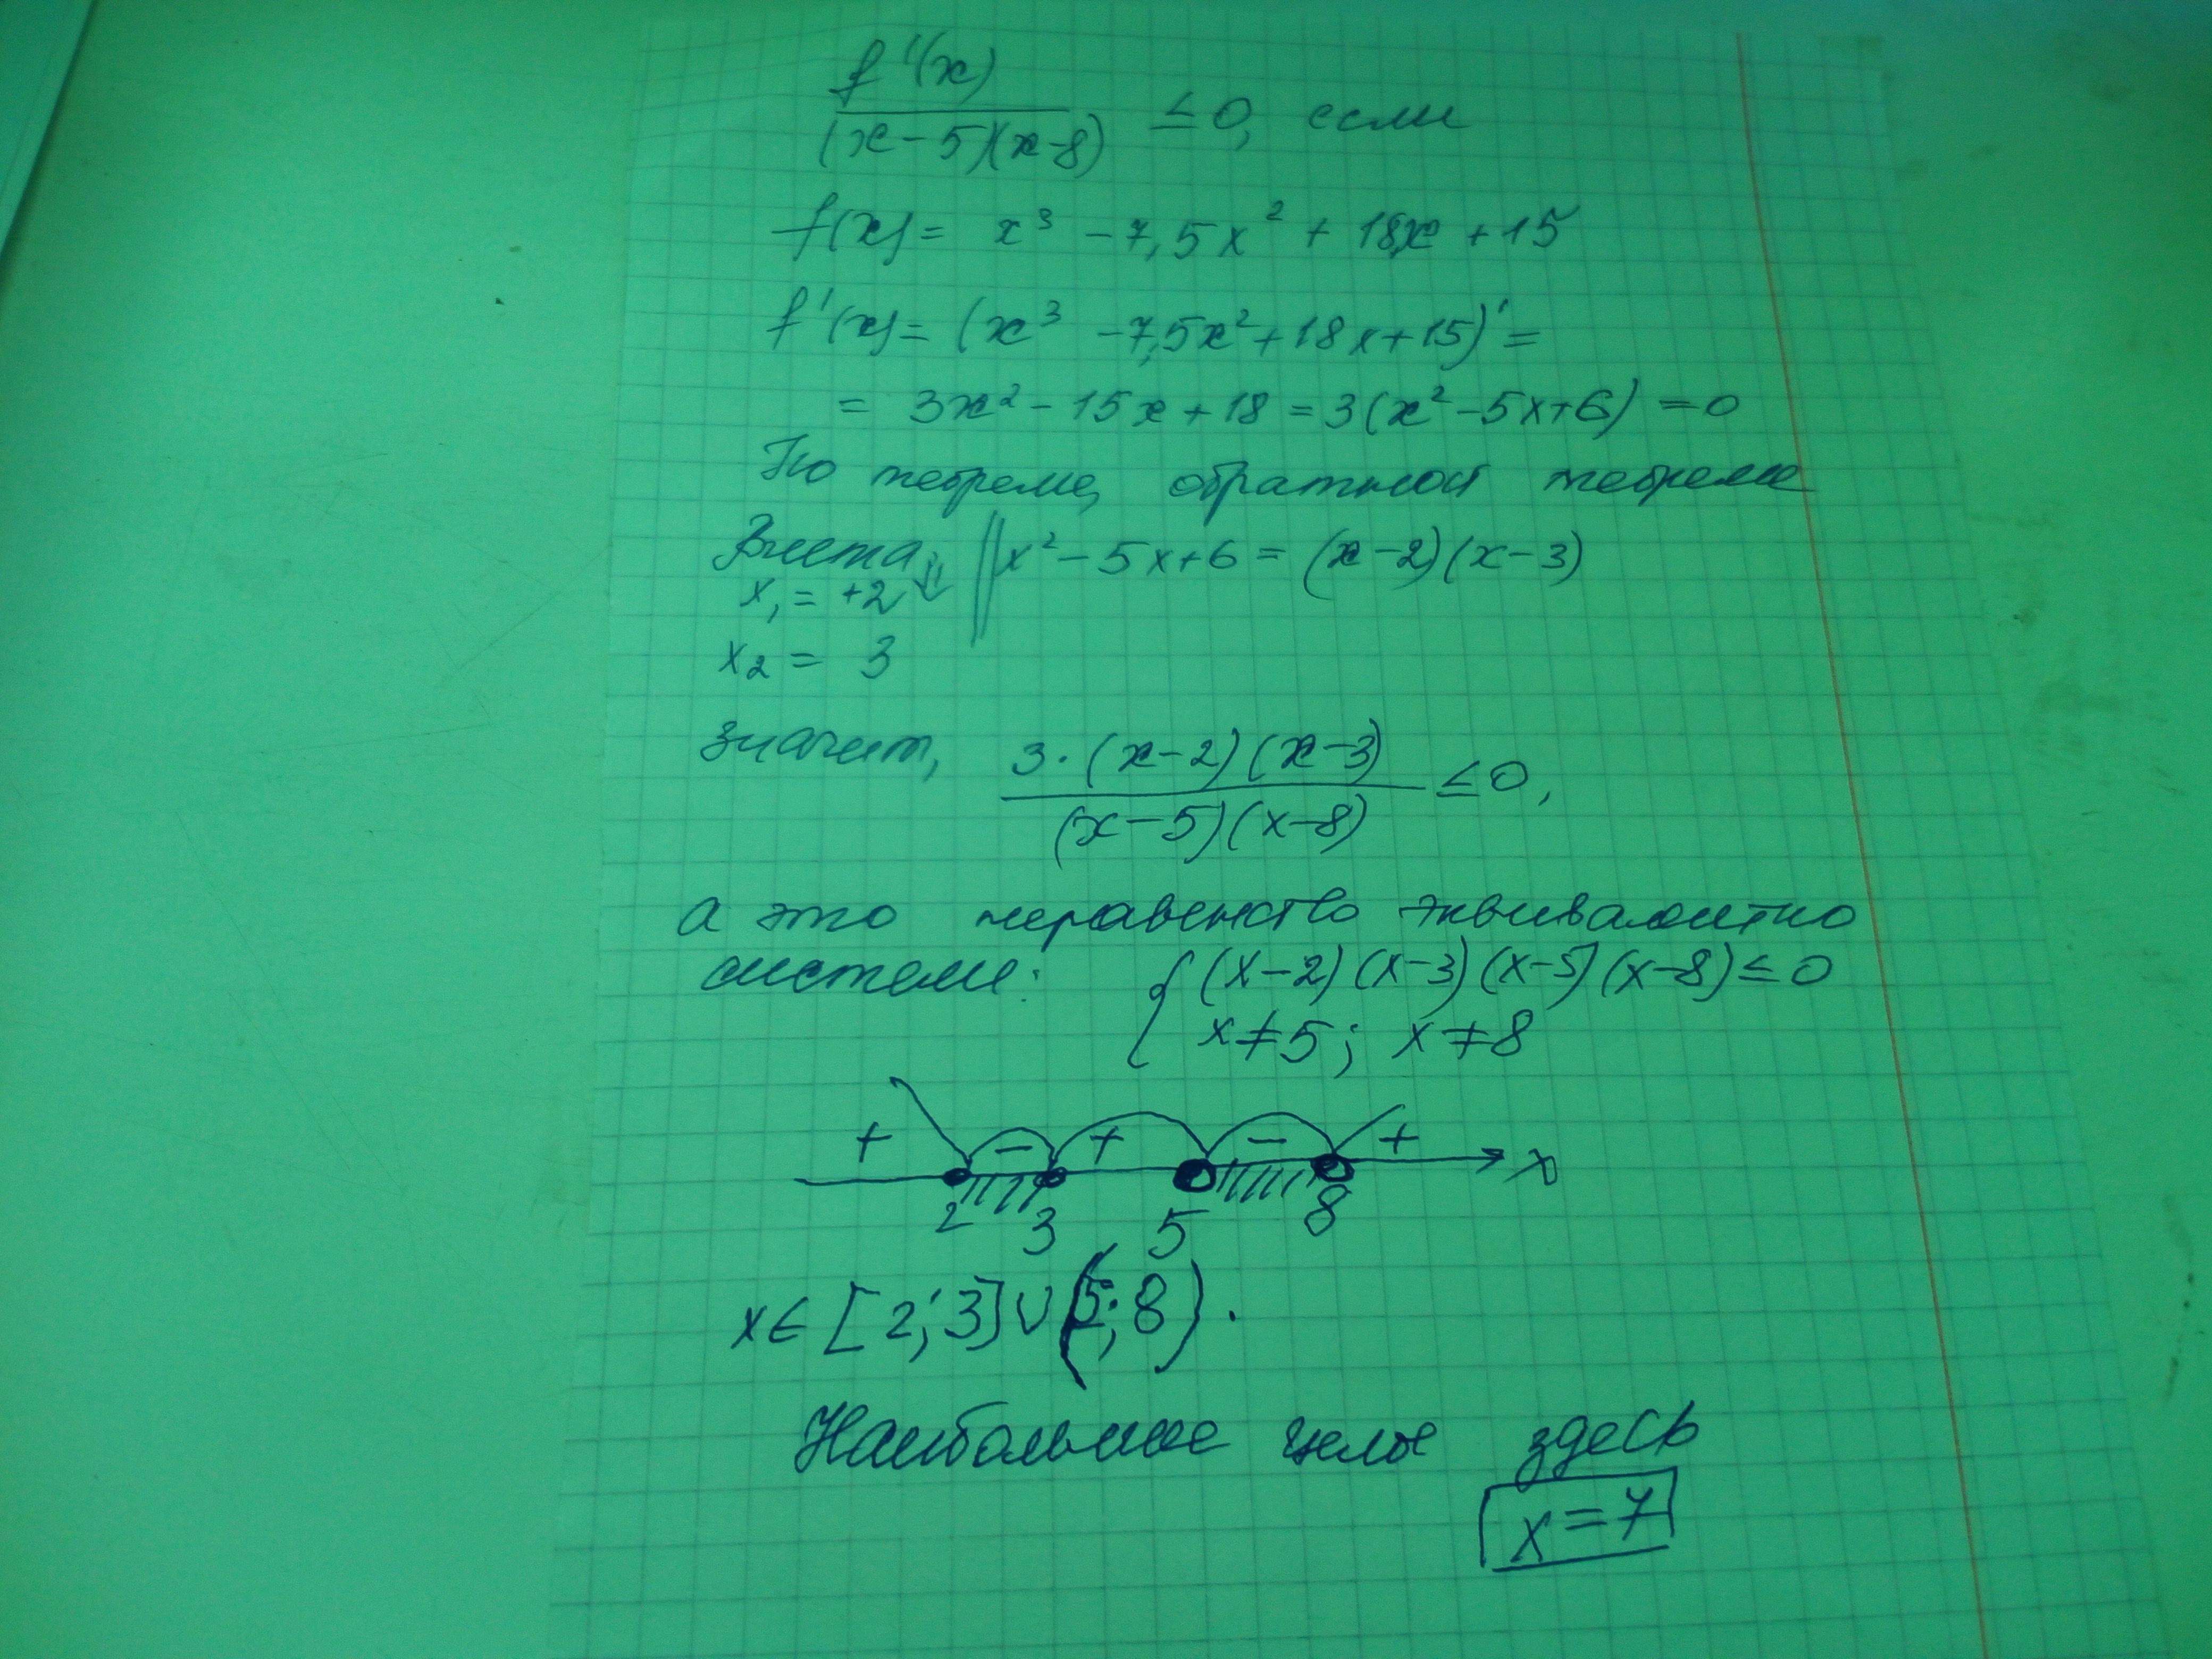 f'(x)
(x-5)(x-8) ≤ 0, если
f(x) = x³ - 7,5x² + 18x + 15
f'(x) = (x³ - 7,5x² + 18x + 15)' =
= 3x² - 15x + 18 = 3(x² - 5x + 6) = 0
По теореме, обратной теореме
Виета, ⇓ || x² - 5x + 6 = (x-2)(x-3)
x₁ = +2
x₂ = 3
значит, 3·(x-2)(x-3)
(x-5)(x-8) ≤ 0,
а это неравенство эквивалентно
системе: { (x-2)(x-3)(x-5)(x-8) ≤ 0
x ≠ 5; x ≠ 8
+ - + - + x
2 3 5 8
x ∈ [2; 3] ∪ (5; 8).
Наибольшее целое здесь
x = 7